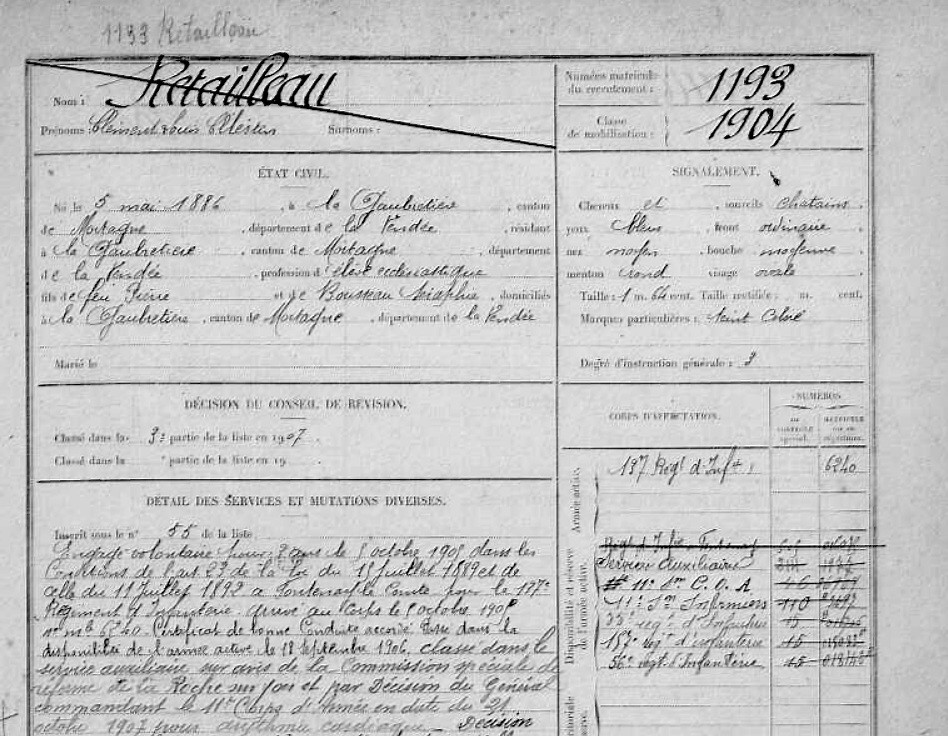 1193 Retailleau
Nom : Retailleau
Prénoms Clément Louis Célestin Surnoms :
Numéro matricule du recrutement : 1193
Classe de mobilisation : 1904
ÉTAT CIVIL.
Né le 5 mai 1886, à la Gaubretière, canton
de Mortagne, département de la Vendée, résidant
à la Gaubretière, canton de Mortagne, département
de la Vendée, profession d'élève ecclésiastique
fils de feu Pierre et de Rousseau Séraphie, domiciliés
à la Gaubretière, canton de Mortagne, département de la Vendée
Marié le
SIGNALEMENT.
Cheveux et sourcils chatains.
yeux bleus front ordinaire
nez moyen, bouche moyenne
menton rond visage ovale
Taille : 1 m. 64 cent. Taille rectifiée : m. cent.
Marques particulières : teint coloré
Degré d'instruction générale : 3
DÉCISION DU CONSEIL DE RÉVISION.
Classé dans la 3e partie de la liste en 1907.
Classé dans la partie de la liste en 19
CORPS D'AFFECTATION.
NUMÉROS
DE CONTRÔLE spécial.
MATRICULE ou au répertoire.
Armée active.
137 Régt d'Inft. 6240
Disponibilité et réserve de l'armée active.
Régt d'Infie Fontenay
Service Auxiliaire
11e Son C.O.A
11e Son Infirmiers 110
33e régt d'Infanterie 15
137e régt d'infanterie 15
56e régt d'Infanterie 15
DÉTAIL DES SERVICES ET MUTATIONS DIVERSES.
Inscrit sous le n° 55 de la liste
Engagé volontaire pour 3 ans le 5 octobre 1905 dans les
Conditions de l'art. 23 de la Loi du 15 juillet 1889 et de
celle du 11 juillet 1892 à Fontenay le Comte pour le 137e
Régiment d'Infanterie. Arrivé au Corps le 8 octobre 1905
no mle 6240. Certificat de bonne Conduite accordé. Passé dans la
disponibilité de l'armée active le 18 septembre 1906. classé dans le
service auxiliaire sur avis de la Commission spéciale de
réforme de la Roche sur Yon et par Décision du Général
commandant le 11e Corps d'Armée en date du 21
octobre 1907 pour arythmie cardiaque. Décision